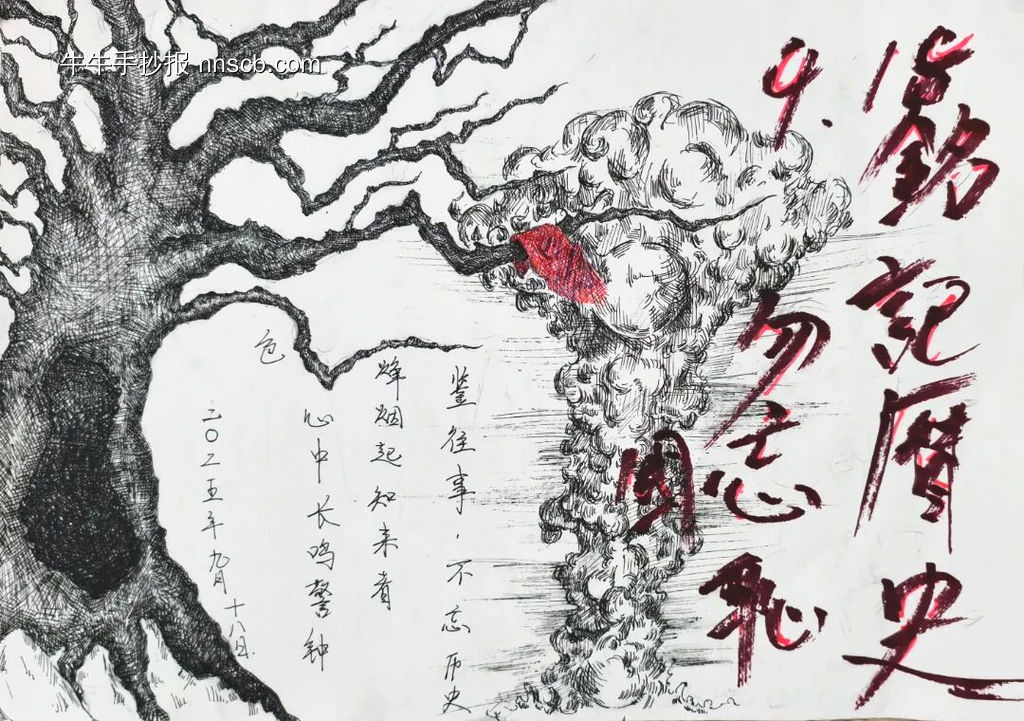 牛牛手抄报 nnscb.com
9.18
銘記曆史
勿忘国恥
鉴往事.不忘历史
烽烟起知来者
心中长鸣警钟
二〇二五年九月十八日